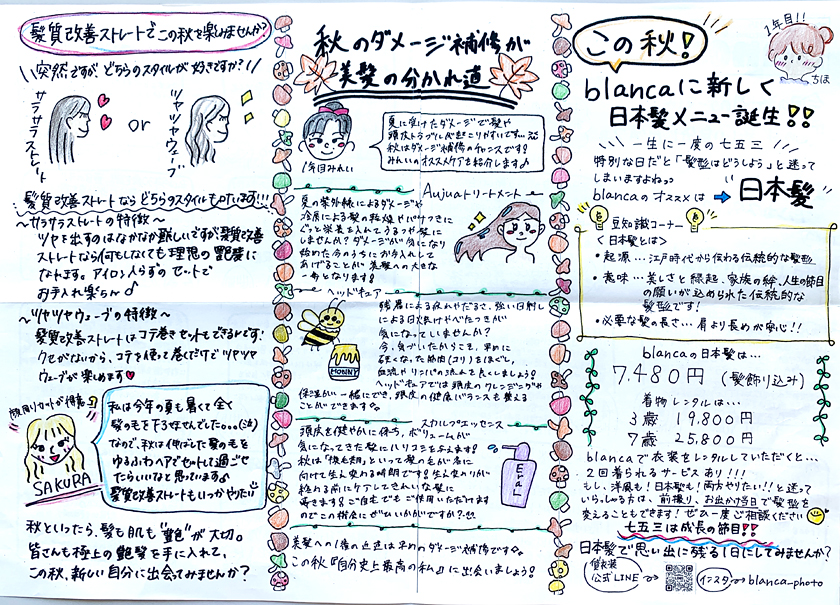 髪質改善ストレートでこの秋を楽しみませんか?
突然ですが、どちらのスタイルが好きですか?
サラサラストレート
or
ツヤツヤウェーブ
髪質改善ストレートならどちらのスタイルも叶います!!!
〜サラサラストレートの特徴〜
ツヤを出すのはなかなか難しいですが髪質改善
ストレートなら何もしなくても理想の艶髪に
なれます。アイロンいらずのセットで
お手入れ楽ちん♪
〜ツヤツヤウェーブの特徴〜
髪質改善ストレートはコテ巻きセットもできるんです!
クセがないから、コテを使って巻くだけでツヤツヤ
ウェーブが楽しめます♥
顔周りカットが得意
SAKURA
私は今年の夏も暑くて全く
髪の毛を下ろせませんでした。。。(泣)
なので、秋は伸ばした髪の毛を
ゆるふわヘアでセットして過ごせ
たらいいなと思っています♪
髪質改善ストレートもいつかやりたい
秋といったら、髪も肌も"艶"が大切。
皆さんも極上の艶髪を手に入れて、
この秋、新しい自分に出会ってみませんか?
秋のダメージ補修が
美髪の分かれ道
1年目みれい
夏に受けたダメージで髪や
頭皮トラブルが起こりやすいです...
秋はダメージ補修のチャンスです!
みれいのオススメケアを紹介します♪
Aujuaトリートメント
夏の紫外線によるダメージや
冷房による髪の乾燥やパサつきに
ぐっと栄養を入れてうるツヤ髪に
しませんか?ダメージが気になり
始めた今のうちにお手入れして
あげることが美髪への大きな
一歩となります!
ヘッドキュア
残暑による疲れやだるさ、強い日射し
による日欠けやべたつきが
気になっていませんか?
今、気づいたからこそ、早めに
硬くなった筋肉(コリ)をほぐし、
血流やリンパの流れを良くしましょう!
ヘッドキュアでは頭皮のクレンジングや
保湿が一緒にでき、頭皮の健康バランスも整える
ことができます。
HONNY
スカルプエッセンス
頭皮を健やかに保ち、ボリュームが
気になってきた髪にハリコシを与えます!
秋は"換毛期"といって髪の毛が冬に
向けて生え変わる時期です!生え変わりが
終わる前にケアしてきれいな髪に
導きます!ご自宅でもご使用いただけます
のでこの機会にぜひいかがですか?
美髪への1番の近道は早めのダメージ補修です。
この秋『自分史上最高の私』に出会いましょう!
この秋!
1年目!!
ちほ
blancaに新しく
日本髪メニュー誕生!!
一生に一度の七五三
特別な日だと「髪型はどうしよう」と迷って
しまいますよねっ
blancaのオススメは➡日本髪
豆知識コーナー
<日本髪とは>
・起源…江戸時代から伝わる伝統的な髪型
・意味…美しさと縁起、家族の絆、人生の節目
の願いが込められた伝統的な
髪型です!
・必要な髪の長さ…肩より長めが安心!!
blancaの日本髪は…
7,480円(髪飾り込み)
着物レンタルは…
3歳 19,800円
7歳 25,800円
blancaで衣装をレンタルしていただくと…
2回着られるサービスあり!!!
もし、洋風も!日本髪も!両方やりたい!!と迷って
いらっしゃる方は、前撮り、お出かけ当日で髪型を
変えることもできます!ぜひ一度ご相談ください
七五三は成長の節目!!
日本髪で思い出に残る1日にしてみませんか?
貸衣装
公式LINE→
インスタ→blanca-photo